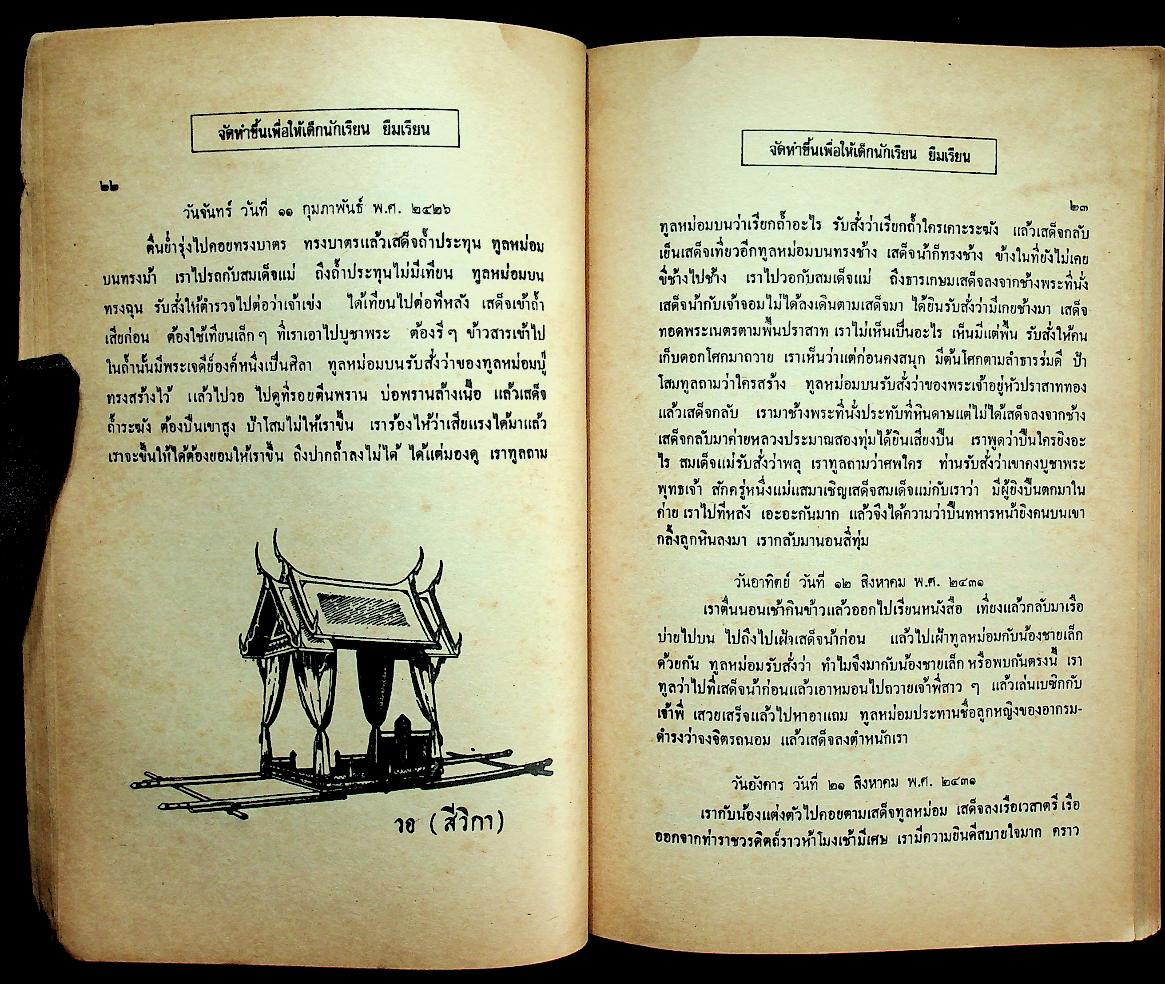 จัดทำขึ้นเพื่อให้เด็กนักเรียน ยืมเรียน
๒๒
วันจันทร์ วันที่ ๑๑ กุมภาพันธ์ พ.ศ. ๒๔๒๖
ตื่นย่ำรุ่งไปคอยทรงบาตร ทรงบาตรแล้วเสด็จถ้ำประทุน ทูลหม่อม
บนทรงม้า เราไปรถกับสมเด็จแม่ ถึงถ้ำประทุนไม่มีเทียน ทูลหม่อมบน
ทรงฉุน รับสั่งให้ตำรวจไปต่อว่าเจ้าเข่ง ได้เทียนไปต่อที่หลัง เสด็จเข้าถ้ำ
เสียก่อน ต้องใช้เทียนเล็กๆ ที่เราเอาไปบูชาพระ ต้องรี่ๆ ข้าวสารเข้าไป
ในถ้ำนั้นมีพระเจดีย์องค์หนึ่งเป็นศิลา ทูลหม่อมบนรับสั่งว่าของทูลหม่อมปู่
ทรงสร้างไว้ แล้วไปวอ ไปดูที่รอยตีนพราน บ่อพรานล้างเนื้อ แล้วเสด็จ
ถ้ำระฆัง ต้องปีนเขาสูง ป้าโสมไม่ให้เราขึ้น เราร้องไห้ว่าเสียแรงได้มาแล้ว
เราจะขึ้นให้ได้ต้องยอมให้เราขึ้น ถึงปากถ้ำลงไม่ได้ ได้แต่มองดู เราทูลถาม
วอ (สีวิกา)
จัดทำขึ้นเพื่อให้เด็กนักเรียน ยืมเรียน
๒๓
ทูลหม่อมบนว่าเรียกถ้ำอะไร รับสั่งว่าเรียกถ้ำใครเคาะระฆัง แล้วเสด็จกลับ
เย็นเสด็จเที่ยวอีกทูลหม่อมบนทรงช้าง เสด็จน้าก็ทรงช้าง ข้างในที่ยังไม่เคย
ขี่ช้างไปช้าง เราไปวอกับสมเด็จแม่ ถึงธารเกษมเสด็จลงจากช้างพระที่นั่ง
เสด็จน้ากับเจ้าจอมไม่ได้ลงเดินตามเสด็จมา ได้ยินรับสั่งว่ามีเกยช้างมา เสด็จ
ทอดพระเนตรตามพื้นปราสาท เราไม่เห็นเป็นอะไร เห็นมีแต่พื้น รับสั่งให้คน
เก็บดอกโศกมาถวาย เราเห็นว่าแต่ก่อนคงสนุก มีต้นโศกตามลำธารร่มดี ป้า
โสมทูลถามว่าใครสร้าง ทูลหม่อมบนรับสั่งว่าของพระเจ้าอยู่หัวปราสาททอง
แล้วเสด็จกลับ เรามาช้างพระที่นั่งประทับที่หินดาษแต่ไม่ได้เสด็จลงจากช้าง
เสด็จกลับมาค่ายหลวงประมาณสองทุ่มได้ยินเสียงปืน เราพูดว่าปืนใครยิงอะ
ไร สมเด็จแม่รับสั่งว่าพลุ เราทูลถามว่าศพใคร ท่านรับสั่งว่าเขาคงบูชาพระ
พุทธเจ้า สักครู่หนึ่งแม่แสมาเชิญเสด็จสมเด็จแม่กับเราว่า มีผู้ยิงปืนตกมาใน
ค่าย เราไปที่หลัง เอะอะกันมาก แล้วจึงได้ความว่าปืนทหารหน้ายิงคนบนเขา
กลิ้งลูกหินลงมา เรากลับมานอนสี่ทุ่ม
วันอาทิตย์ วันที่ ๑๒ สิงหาคม พ.ศ. ๒๔๓๑
เราตื่นนอนเช้ากินข้าวแล้วออกไปเรียนหนังสือ เที่ยงแล้วกลับมาเรือ
บ่ายไปบน ไปถึงไปเฝ้าเสด็จน้าก่อน แล้วไปเฝ้าทูลหม่อมกับน้องชายเล็ก
ด้วยกัน ทูลหม่อมรับสั่งว่า ทำไมจึงมากับน้องชายเล็ก หรือพบกันตรงนี้ เรา
ทูลว่าไปที่เสด็จน้าก่อนแล้วเอาหมอนไปถวายเจ้าพี่สาว ๆ แล้วเล่นเบซิกกับ
เจ้าพี่ เสวยเสร็จแล้วไปหาอาแถม ทูลหม่อมประทานชื่อลูกหญิงของอากรม-
ดำรงว่าจงจิตรถนอม แล้วเสด็จลงตำหนักเรา
วันอังคาร วันที่ ๒๑ สิงหาคม พ.ศ. ๒๔๓๑
เรากับน้องแต่งตัวไปคอยตามเสด็จทูลหม่อม เสด็จลงเรือเวสาตรี เรือ
ออกจากท่าราชวรดิตถ์ราวห้าโมงเช้ามีเศษ เรามีความยินดีสบายใจมาก คราว